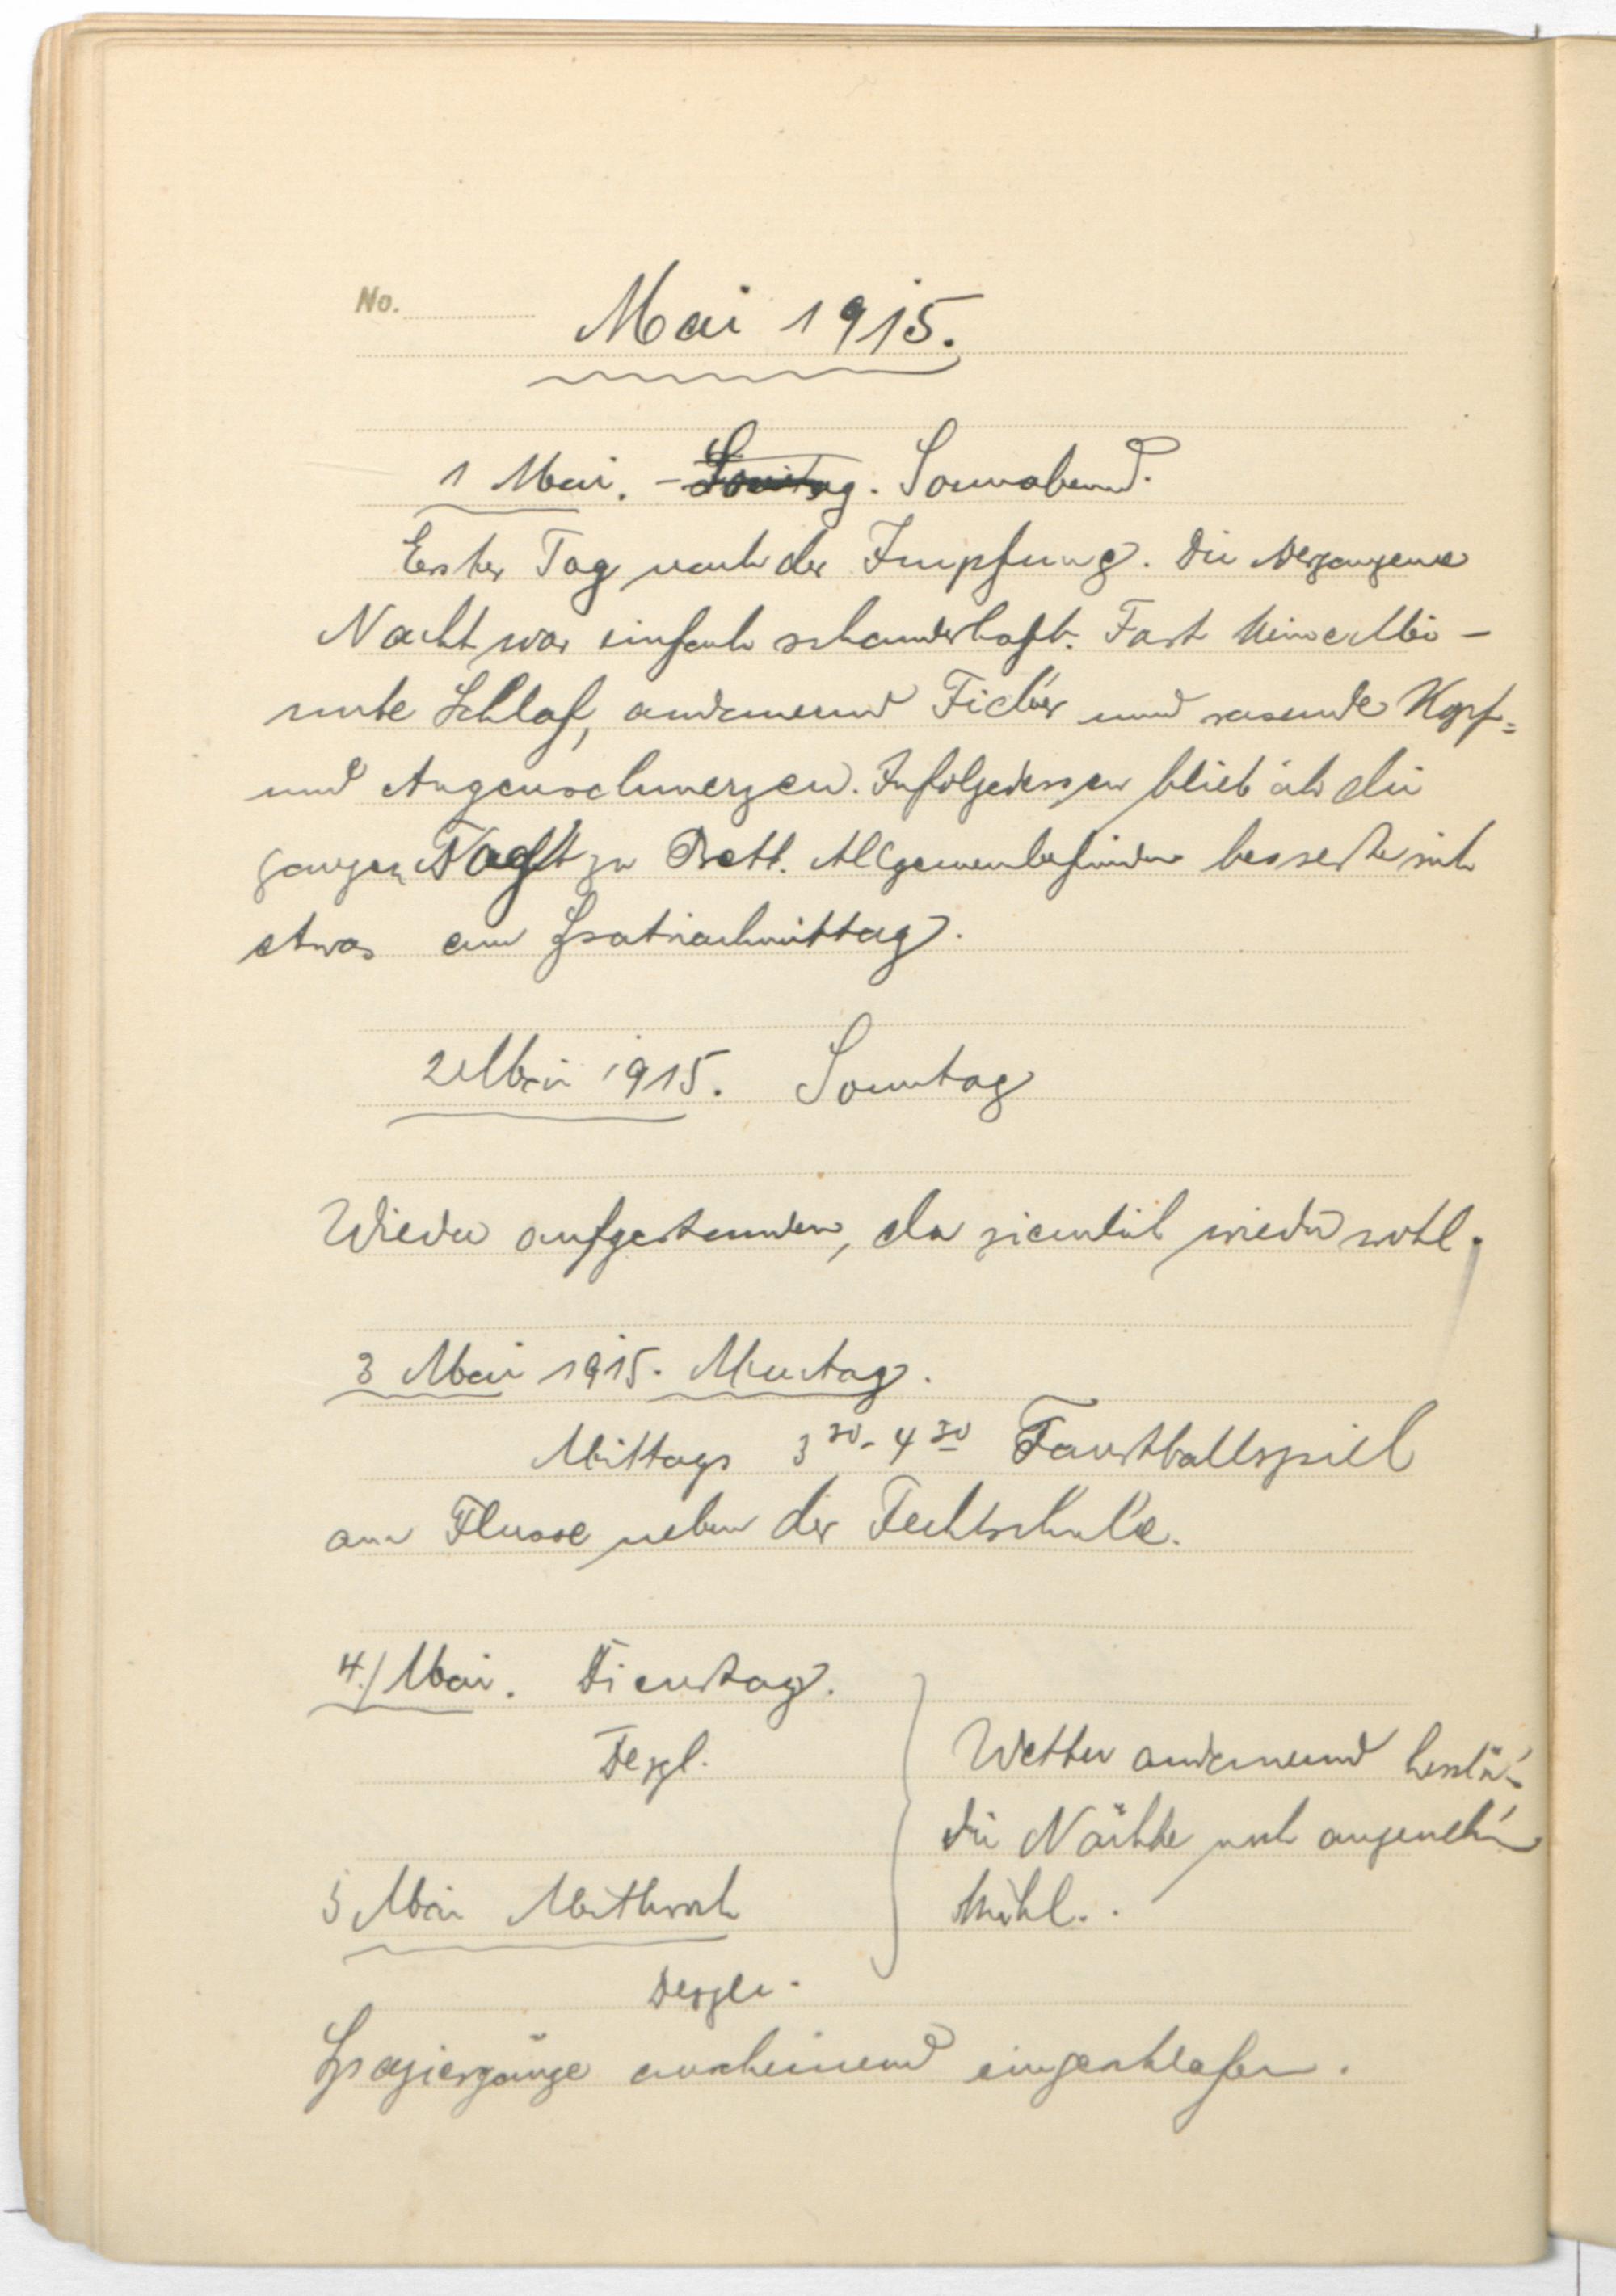 No.
Mai 1915.
1 Mai. - Sonntag. Sonnabend.
Erster Tag nach der Impfung. Die vergangene
Nacht war einfach schauderhaft. Fast keine Mi-
nute Schlaf, andauernd Fieber und rasende Kopf=
und Augenschmerzen. Infolgedessen blieb ich die
ganzen Tag zu Bett. Allgemeinbefinden besserte sich
etwas am Spätnachmittag.
2 Mai 1915. Sonntag
Wieder aufgestanden, da ziemlich wieder wohl.
3 Mai 1915. Montag.
Mittags 3 30 - 4 30 Faustballspiel
am Flusse neben der Fechtschule.
4./ Mai. Dienstag.
Desgl.
Wetter andauernd
die Nächte noch angenehm
5 Mai Mittwoch
kühl.
Desgl.
Spaziergänge anscheinend eingeschlafen.